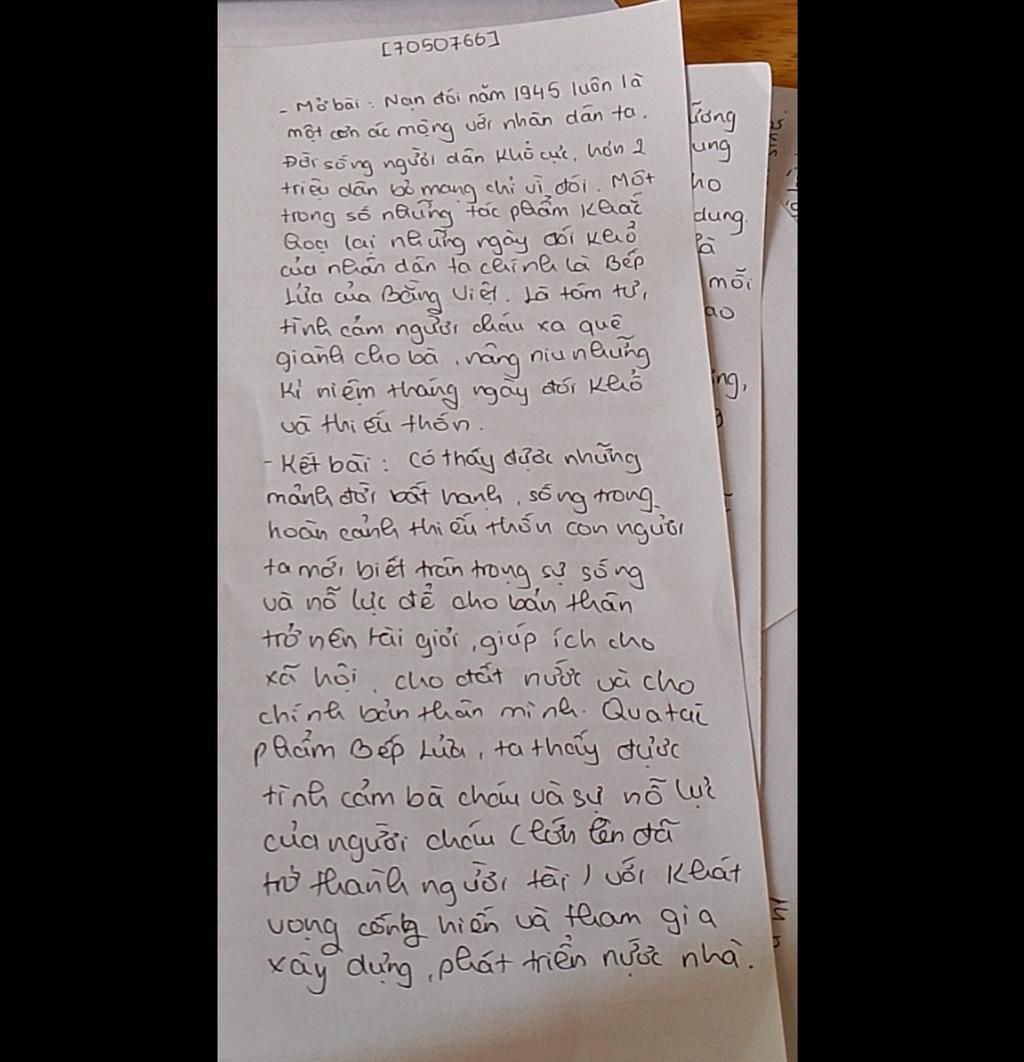 [7050766]
- Mở bài : Nạn đói năm 1945 luôn là
một cơn ác mộng với nhân dân ta.
Đời sống người dân khổ cực, hơn 2
triệu dân bỏ mạng chỉ vì đói. Một
trong số những tác phẩm khắc
hoạ lại những ngày đói khổ
của nhân dân ta chính là Bếp
Lửa của Bằng Việt. Là tâm tư,
tình cảm người cháu xa quê
giành cho bà, nâng niu những
kỉ niệm tháng ngày đói khổ
và thiếu thốn.
- Kết bài : Có thấy được những
mảnh đời bất hạnh, sống trong
hoàn cảnh thiếu thốn con người
ta mới biết trân trọng sự sống
và nỗ lực để cho bản thân
trở nên tài giỏi, giúp ích cho
xã hội, cho đất nước và cho
chính bản thân mình. Qua tác
phẩm Bếp Lửa, ta thấy được
tình cảm bà cháu và sự nỗ lực
của người cháu (lớn lên đã
trở thành người tài) với khát
vọng cống hiến và tham gia
xây dựng, phát triển nước nhà.
ương
ung
ho
dung.
là
mỗi
ao
ng,